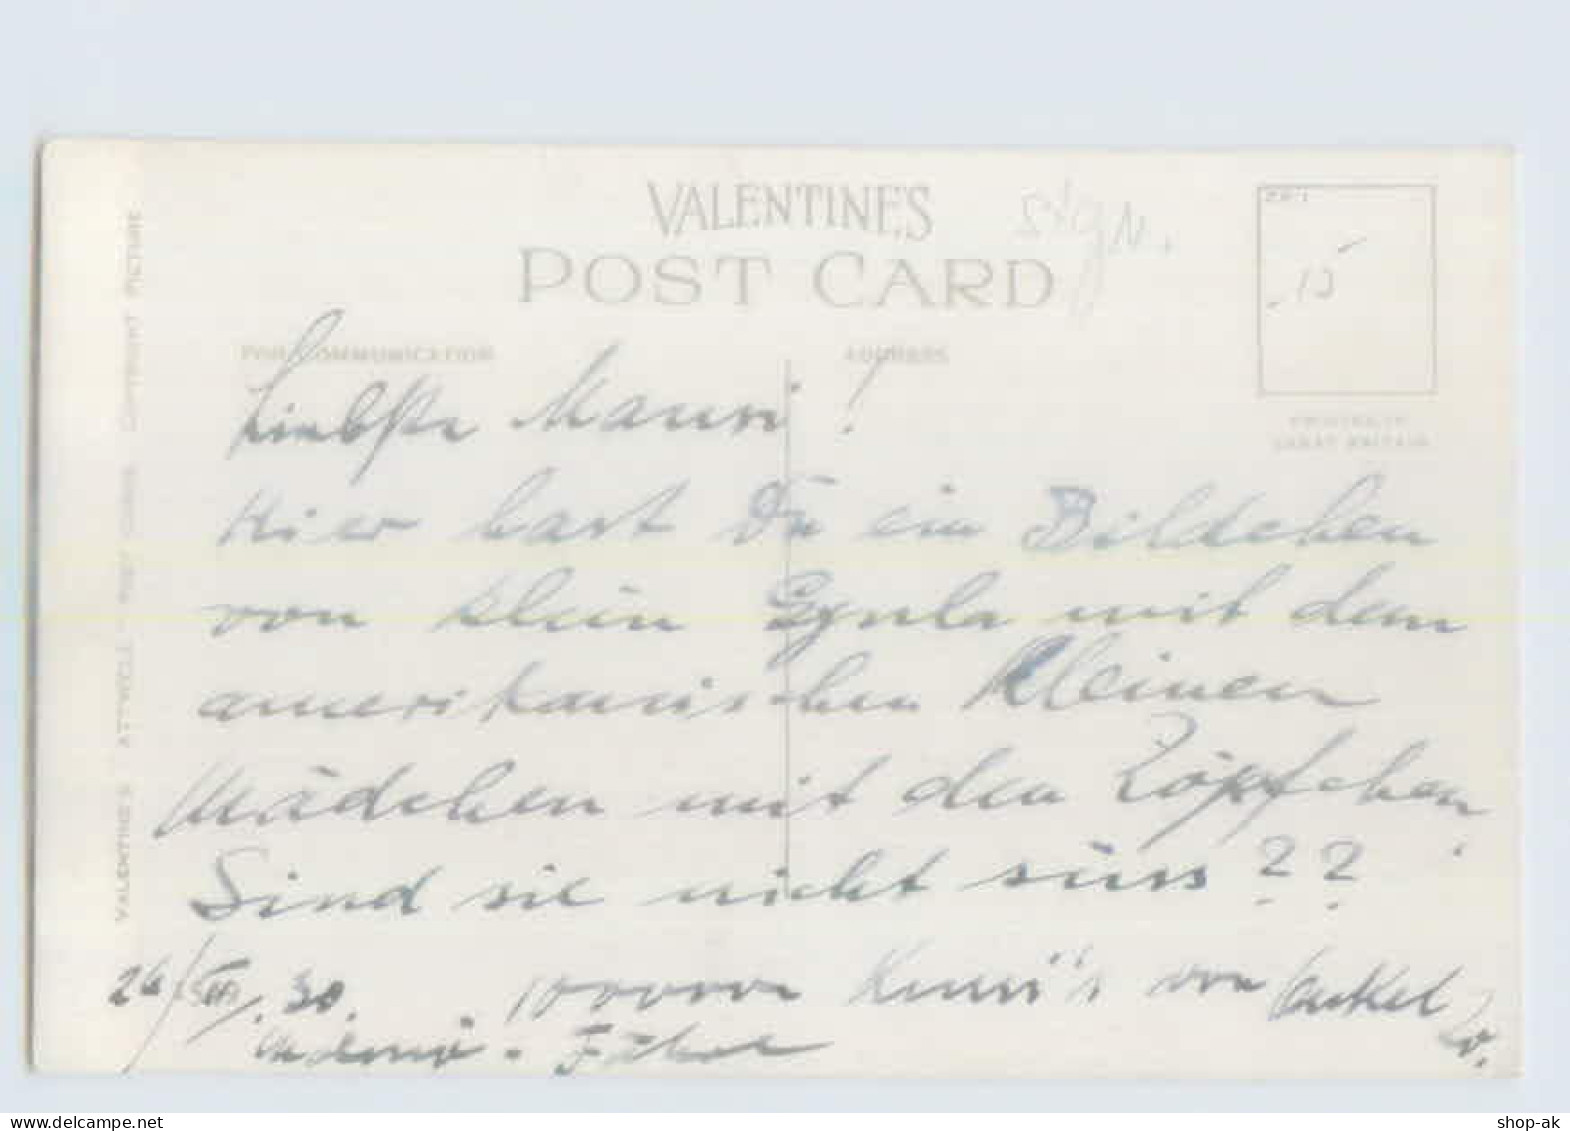 VALENTINE'S
POST CARD
FOR COMMUNICATION
ADDRESS
PRINTED IN
GREAT BRITAIN
VALENTINE'S "ATTWELL" POST CARD. COPYRIGHT PICTURE
15
Liebste Mausi!
Hier hast Du ein Bildchen
von klein Gyula mit dem
amerikanischen Kleinen
Mädchen mit den Zöpfchen.
Sind sie nicht süss??
26/VIII. 30. 1000000 Kussi's von Onkel
shop-ak